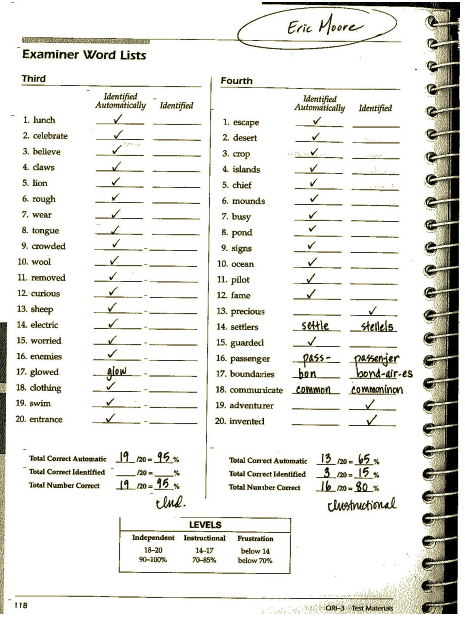 Eric Moore
Examiner Word Lists
Third
Identified Automatically Identified
1. lunch ✓
2. celebrate ✓
3. believe ✓
4. claws ✓
5. lion ✓
6. rough ✓
7. wear ✓
8. tongue ✓
9. crowded ✓
10. wool ✓
11. removed ✓
12. curious ✓
13. sheep ✓
14. electric ✓
15. worried ✓
16. enemies ✓
17. glowed glow
18. clothing ✓
19. swim ✓
20. entrance ✓
Total Correct Automatic 19 /20 = 95 %
Total Correct Identified /20 = %
Total Number Correct 19 /20 = 95 %
Ind.
Fourth
Identified Automatically Identified
1. escape ✓
2. desert ✓
3. crop ✓
4. islands ✓
5. chief ✓
6. mounds ✓
7. busy ✓
8. pond ✓
9. signs ✓
10. ocean ✓
11. pilot ✓
12. fame ✓
13. precious ✓
14. settlers settle stellels
15. guarded ✓
16. passenger pass- passenjer
17. boundaries bon bond-air-es
18. communicate common commoninon
19. adventurer ✓
20. invented ✓
Total Correct Automatic 13 /20 = 65 %
Total Correct Identified 3 /20 = 15 %
Total Number Correct 16 /20 = 80 %
Instructional
LEVELS
Independent Instructional Frustration
18–20 14–17 below 14
90–100% 70–85% below 70%
118
QRI–3 Test Materials